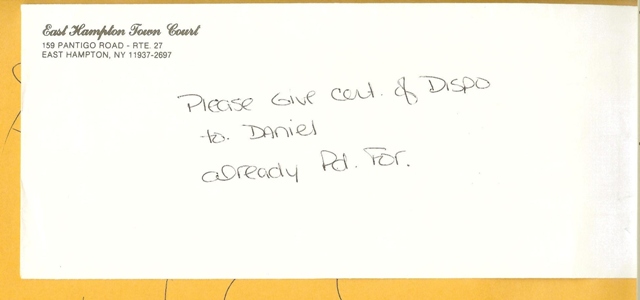 East Hampton Town Court
159 PANTIGO ROAD - RTE. 27
EAST HAMPTON, NY 11937-2697
Please Give cert. of Dispo
to. Daniel
already Pd. For.